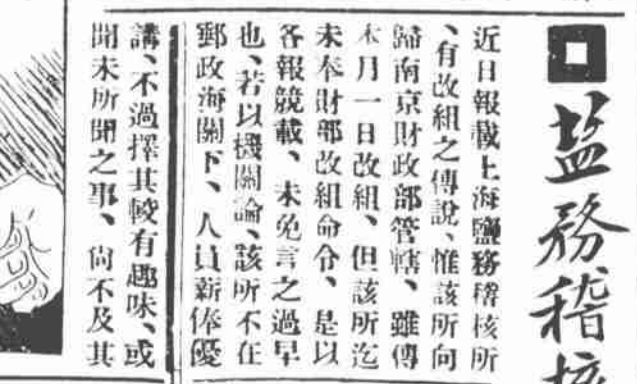 盐務稽核
近日報載上海鹽務稽核所
、有改組之傳說、惟該所向
歸南京財政部管轄、雖傳
本月一日改組、但該所迄
未奉財部改組命令、是以
各報競載、未免言之過早
也、若以機關論、該所不在
郵政海關下、人員薪俸優
講、不過擇其較有趣味、或
聞未所聞之事、尙不及其